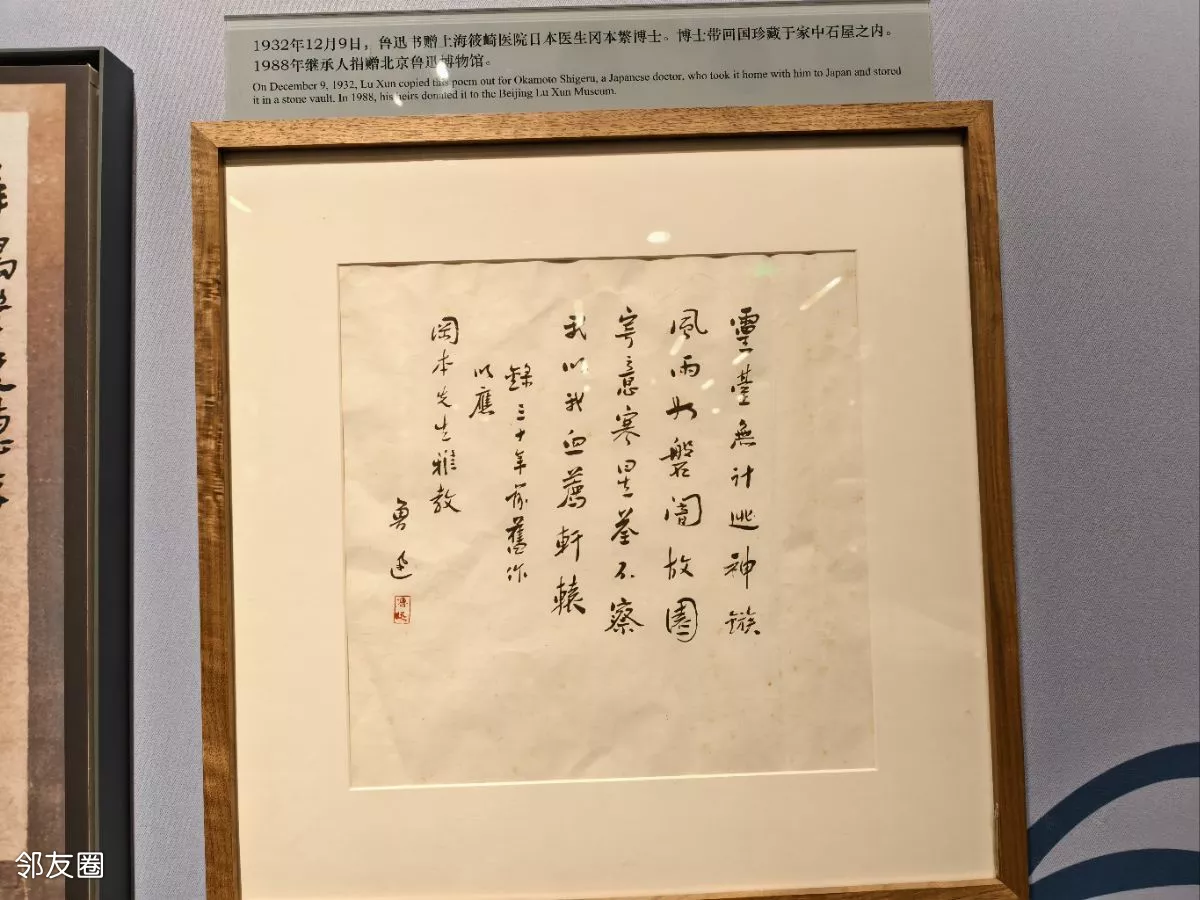 1932年12月9日，鲁迅书赠上海筱崎医院日本医生冈本繁博士。博士带回国珍藏于家中石屋之内。
1988年继承人捐赠北京鲁迅博物馆。
On December 9, 1932, Lu Xun copied this poem out for Okamoto Shigeru, a Japanese doctor, who took it home with him to Japan and stored
it in a stone vault. In 1988, his heirs donated it to the Beijing Lu Xun Museum.
靈臺無計逃神鏃
風雨如磐闇故園
寄意寒星荃不察
我以我血薦軒轅
錄三十年前舊作
以應
岡本先生雅教
魯迅
邻友圈